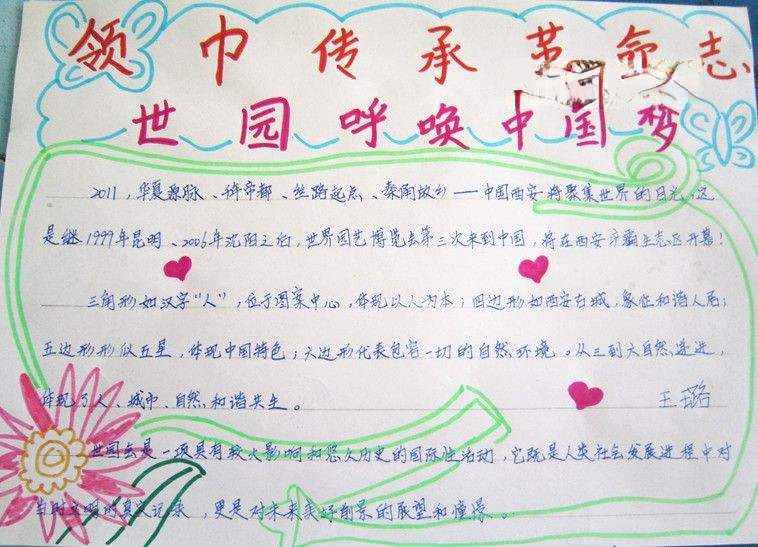 领巾传承革命志
世园呼唤中国梦
2011，华夏源脉、千年帝都、丝路起点、秦俑故乡——中国西安将聚集世界的目光，这
是继1999年昆明、2006年沈阳之后，世界园艺博览会第三次来到中国，将在西安浐灞生态区开幕！
三角形如汉字“人”，位于图案中心，体现以人为本；四边形如西安古城，象征和谐人居；
五边形形似五星，体现中国特色；六边形代表包容一切的自然环境。从三到六自然递进，
体现了人、城市、自然和谐共生。 王璐
世园会是一项具有较大影响和悠久历史的国际性活动，它既是人类社会发展进程中对
当时文明的真实记录，更是对未来美好前景的展望和憧憬。